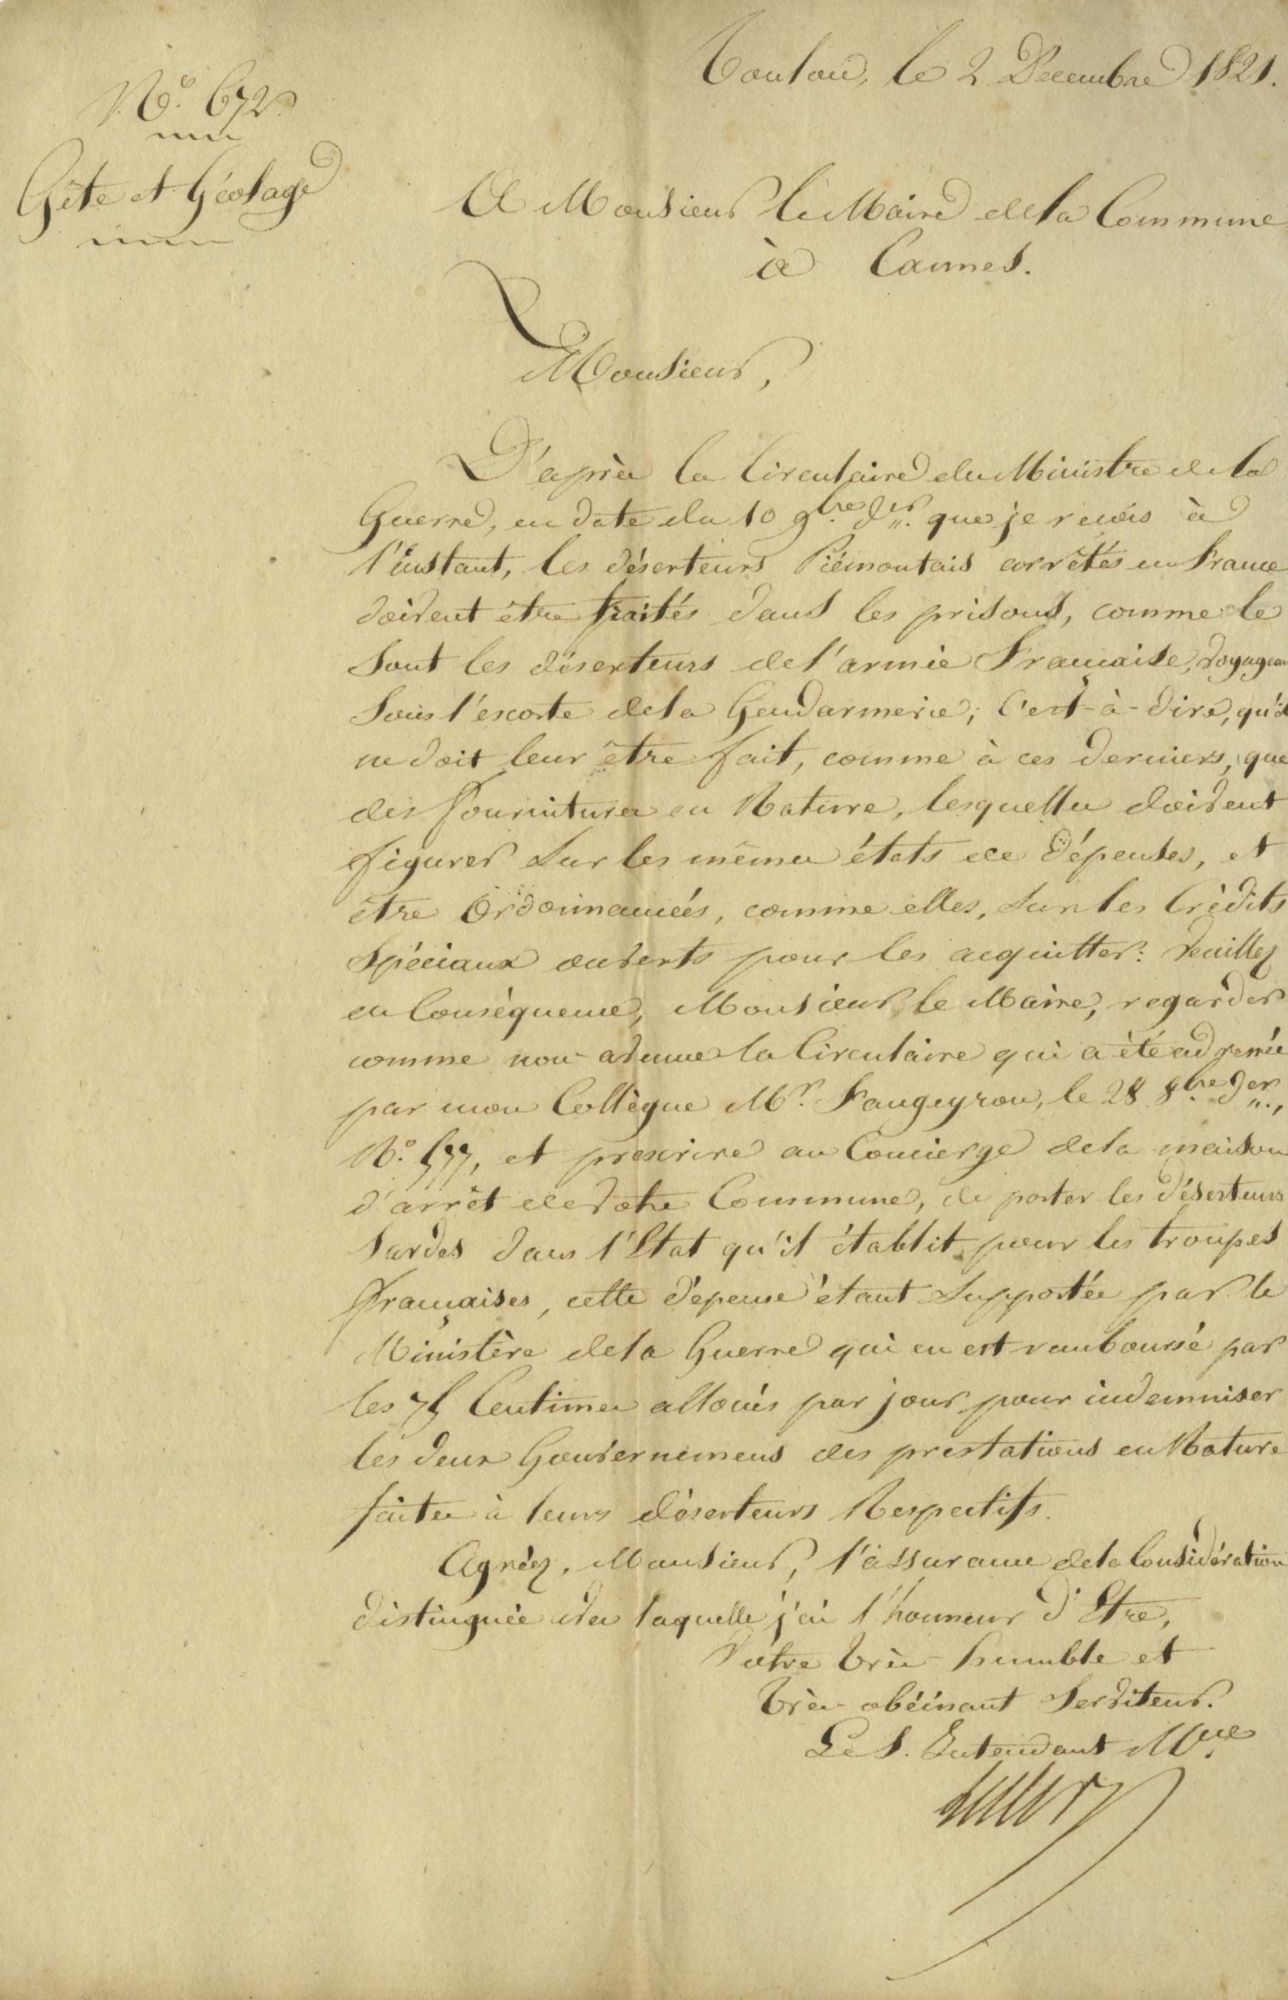 Toulon, le 2 Decembre 1821.
N.° 672.
Gîte et Géolage
A Monsieur le Maire de la Commune
à Cannes.
Monsieur,
D'après la Circulaire du Ministre de la
Guerre, en date du 10 9.bre d.er que je reçois à
l'instant, les déserteurs Piémontais arrêtés en France
doivent être traités dans les prisons, comme le
sont les déserteurs de l'armée Française, voyageant
sous l'escorte de la Gendarmerie; c'est-à-dire, qu'il
ne doit leur être fait, comme à ces derniers, que
des fournitures en Nature, lesquelles doivent
figurer sur les mêmes états de dépenses, et
être Ordonnancées, comme elles, sur les Crédits
Spéciaux ouverts pour les acquitter: Veuillez
en Conséquence, Monsieur le Maire, regarder
comme non-avenue la Circulaire qui a été adressée
par mon Collègue M.r Faugeyrou, le 28 8.bre d.er,
N.° 577, et prescrire au Concierge de la maison
d'arrêt de Votre Commune, de porter les déserteurs
Sardes dans l'Etat qu'il établit pour les troupes
françaises, cette dépense étant supportée par le
Ministère de la Guerre qui en est remboursé par
les 75 Centimes alloués par jour pour indemniser
les deux Gouvernemens des prestations en Nature
faites à leurs déserteurs Respectifs.
Agréez, Monsieur, l'assurance de la Considération
distinguée avec laquelle j'ai l'honneur d'Etre,
Votre très-humble et
très-obéissant Serviteur.
Le S. Intendant M.re